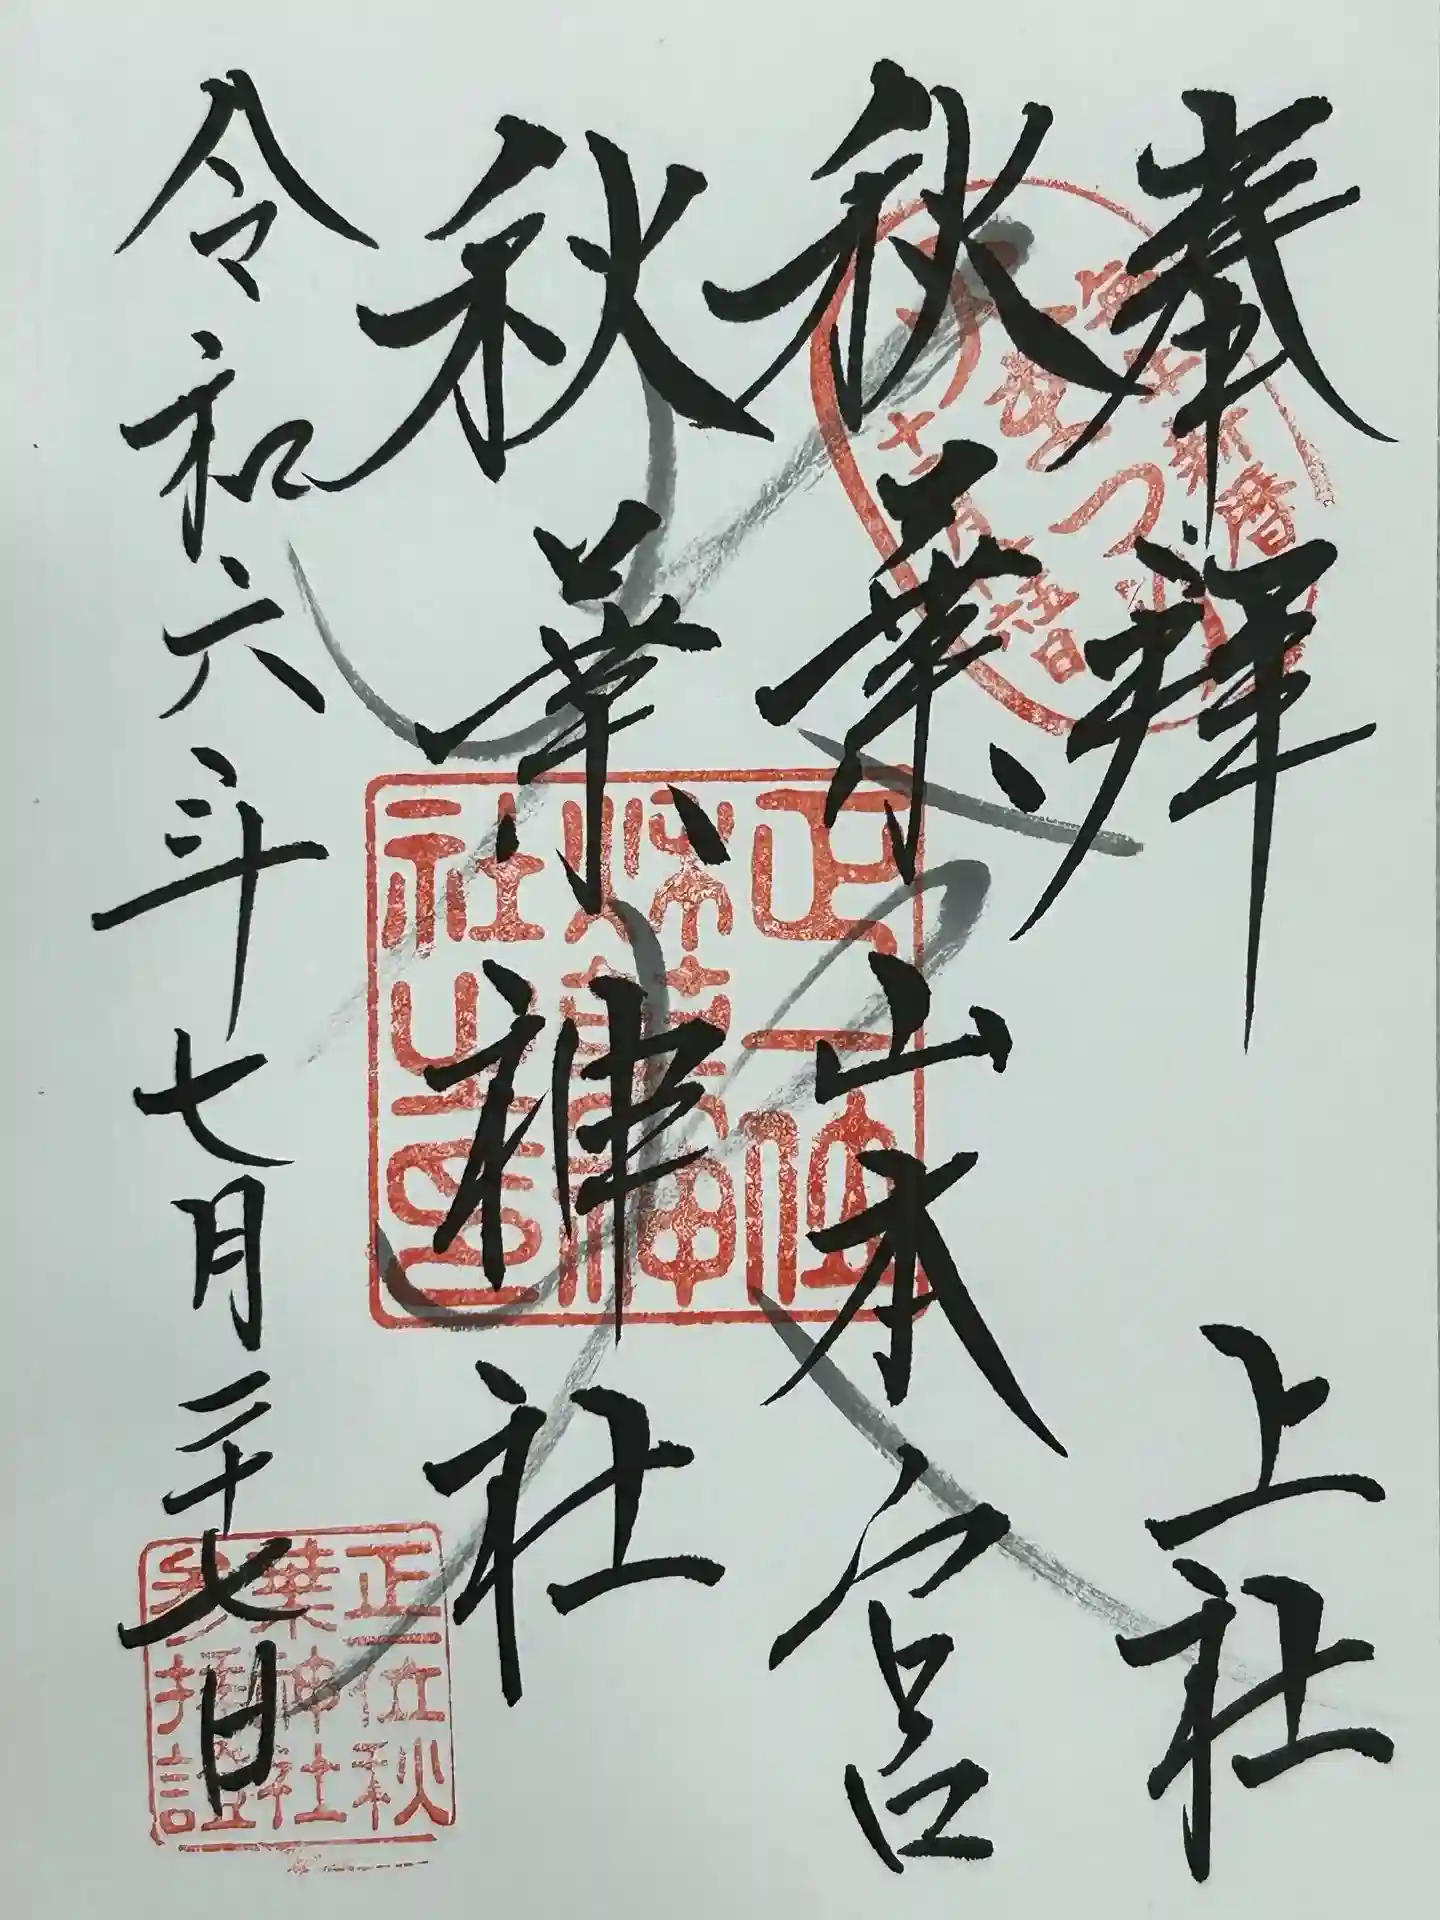 奉拝 上社
秋葉山本宮
秋葉神社
令和六年七月二十七日
正一位
秋葉神
社之印
正一位秋
葉神社
参拝證